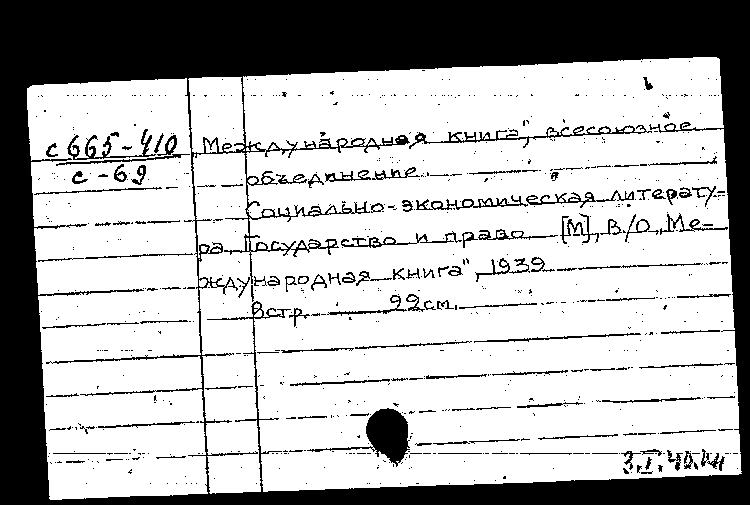 с 665-410
с-69
„Международная книга", всесоюзное
объединение.
Социально-экономическая литерату-
ра. Государство и право. [М], В/О „Ме-
ждународная книга", 1939
8 стр. 22 см.
3.I.40.